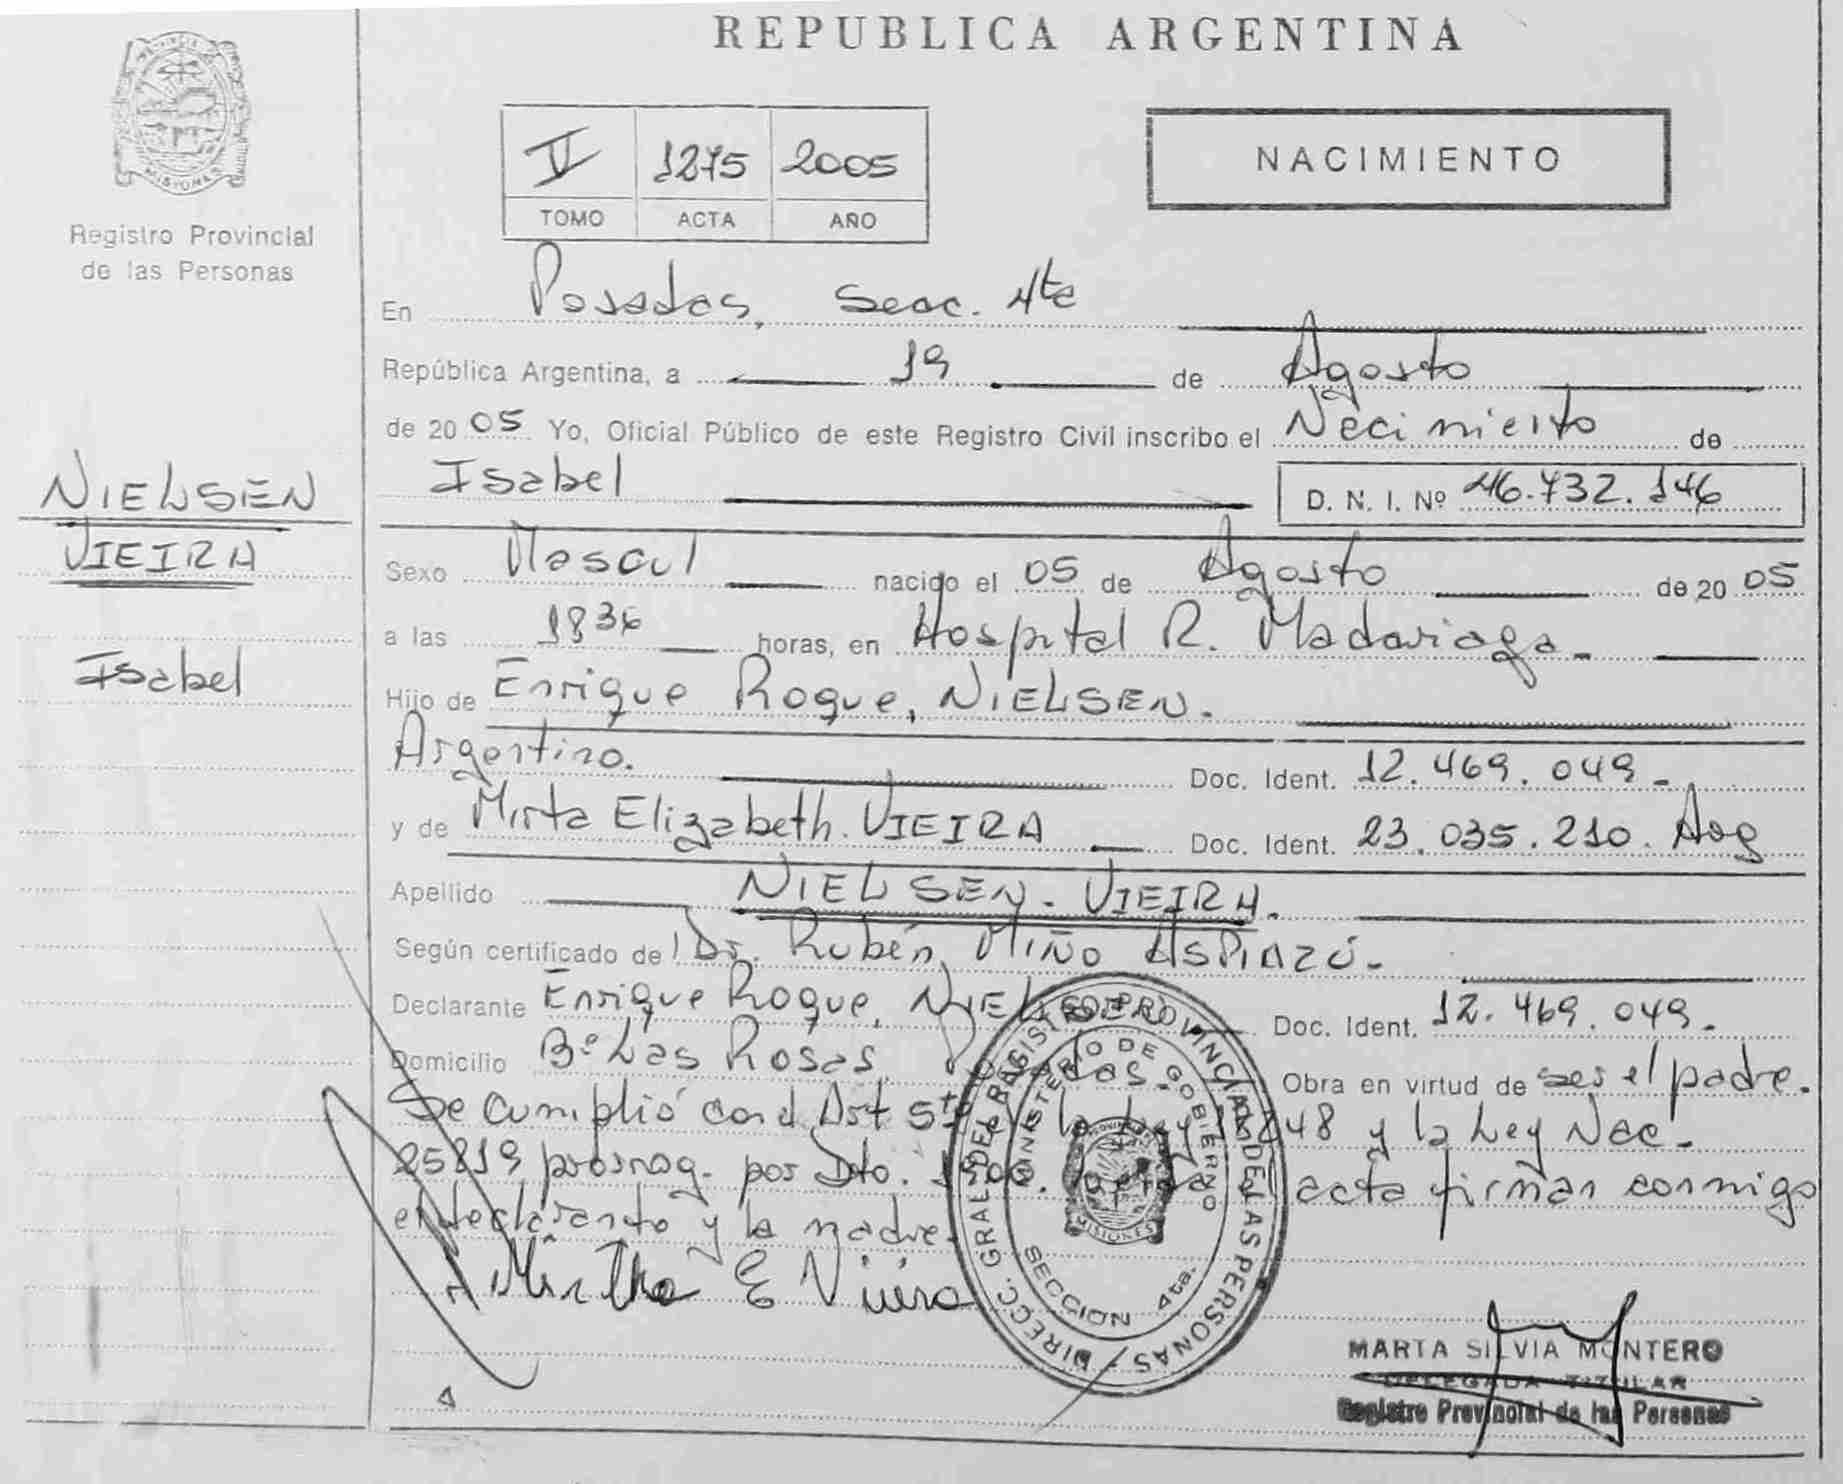 REPUBLICA ARGENTINA
PROVINCIA
MISIONES
Registro Provincial
de las Personas
V 1275 2005
TOMO ACTA AÑO
NACIMIENTO
NIELSEN
VIEIRA
Isabel
En Posadas, Secc. 4ta
República Argentina, a 19 de Agosto
de 20 05 Yo, Oficial Público de este Registro Civil inscribo el Nacimiento de
Isabel D. N. I. Nº 46.732.146
Sexo Mascul nacido el 05 de Agosto de 20 05
a las 1836 horas, en Hospital R. Madariaga.
Hijo de Enrique Roque, NIELSEN.
Argentino. Doc. Ident. 12.469.049.
y de Mirta Elizabeth. VIEIRA Doc. Ident. 23.035.210. Arg
Apellido NIELSEN - VIEIRA.
Según certificado de Dr. Rubén MIÑO ASPIAZÚ.
Declarante Enrique Roque, NIELSEN Doc. Ident. 12.469.049.
Domicilio Bº Las Rosas, Posadas. Obra en virtud de ser el padre.
Se cumplió con el Art 5to de la Ley y la Ley Nac.
25819 por Dto. acta firman conmigo
el declarante y la madre.
Mirtha E Vieira
DIRECC. GRAL. DEL REGISTRO PROVINCIAL DE LAS PERSONAS
MINISTERIO DE GOBIERNO
PROVINCIA
MISIONES
SECCION 4ta.
MARTA SILVIA MONTERO
DELEGADA TITULAR
Registro Provincial de las Personas